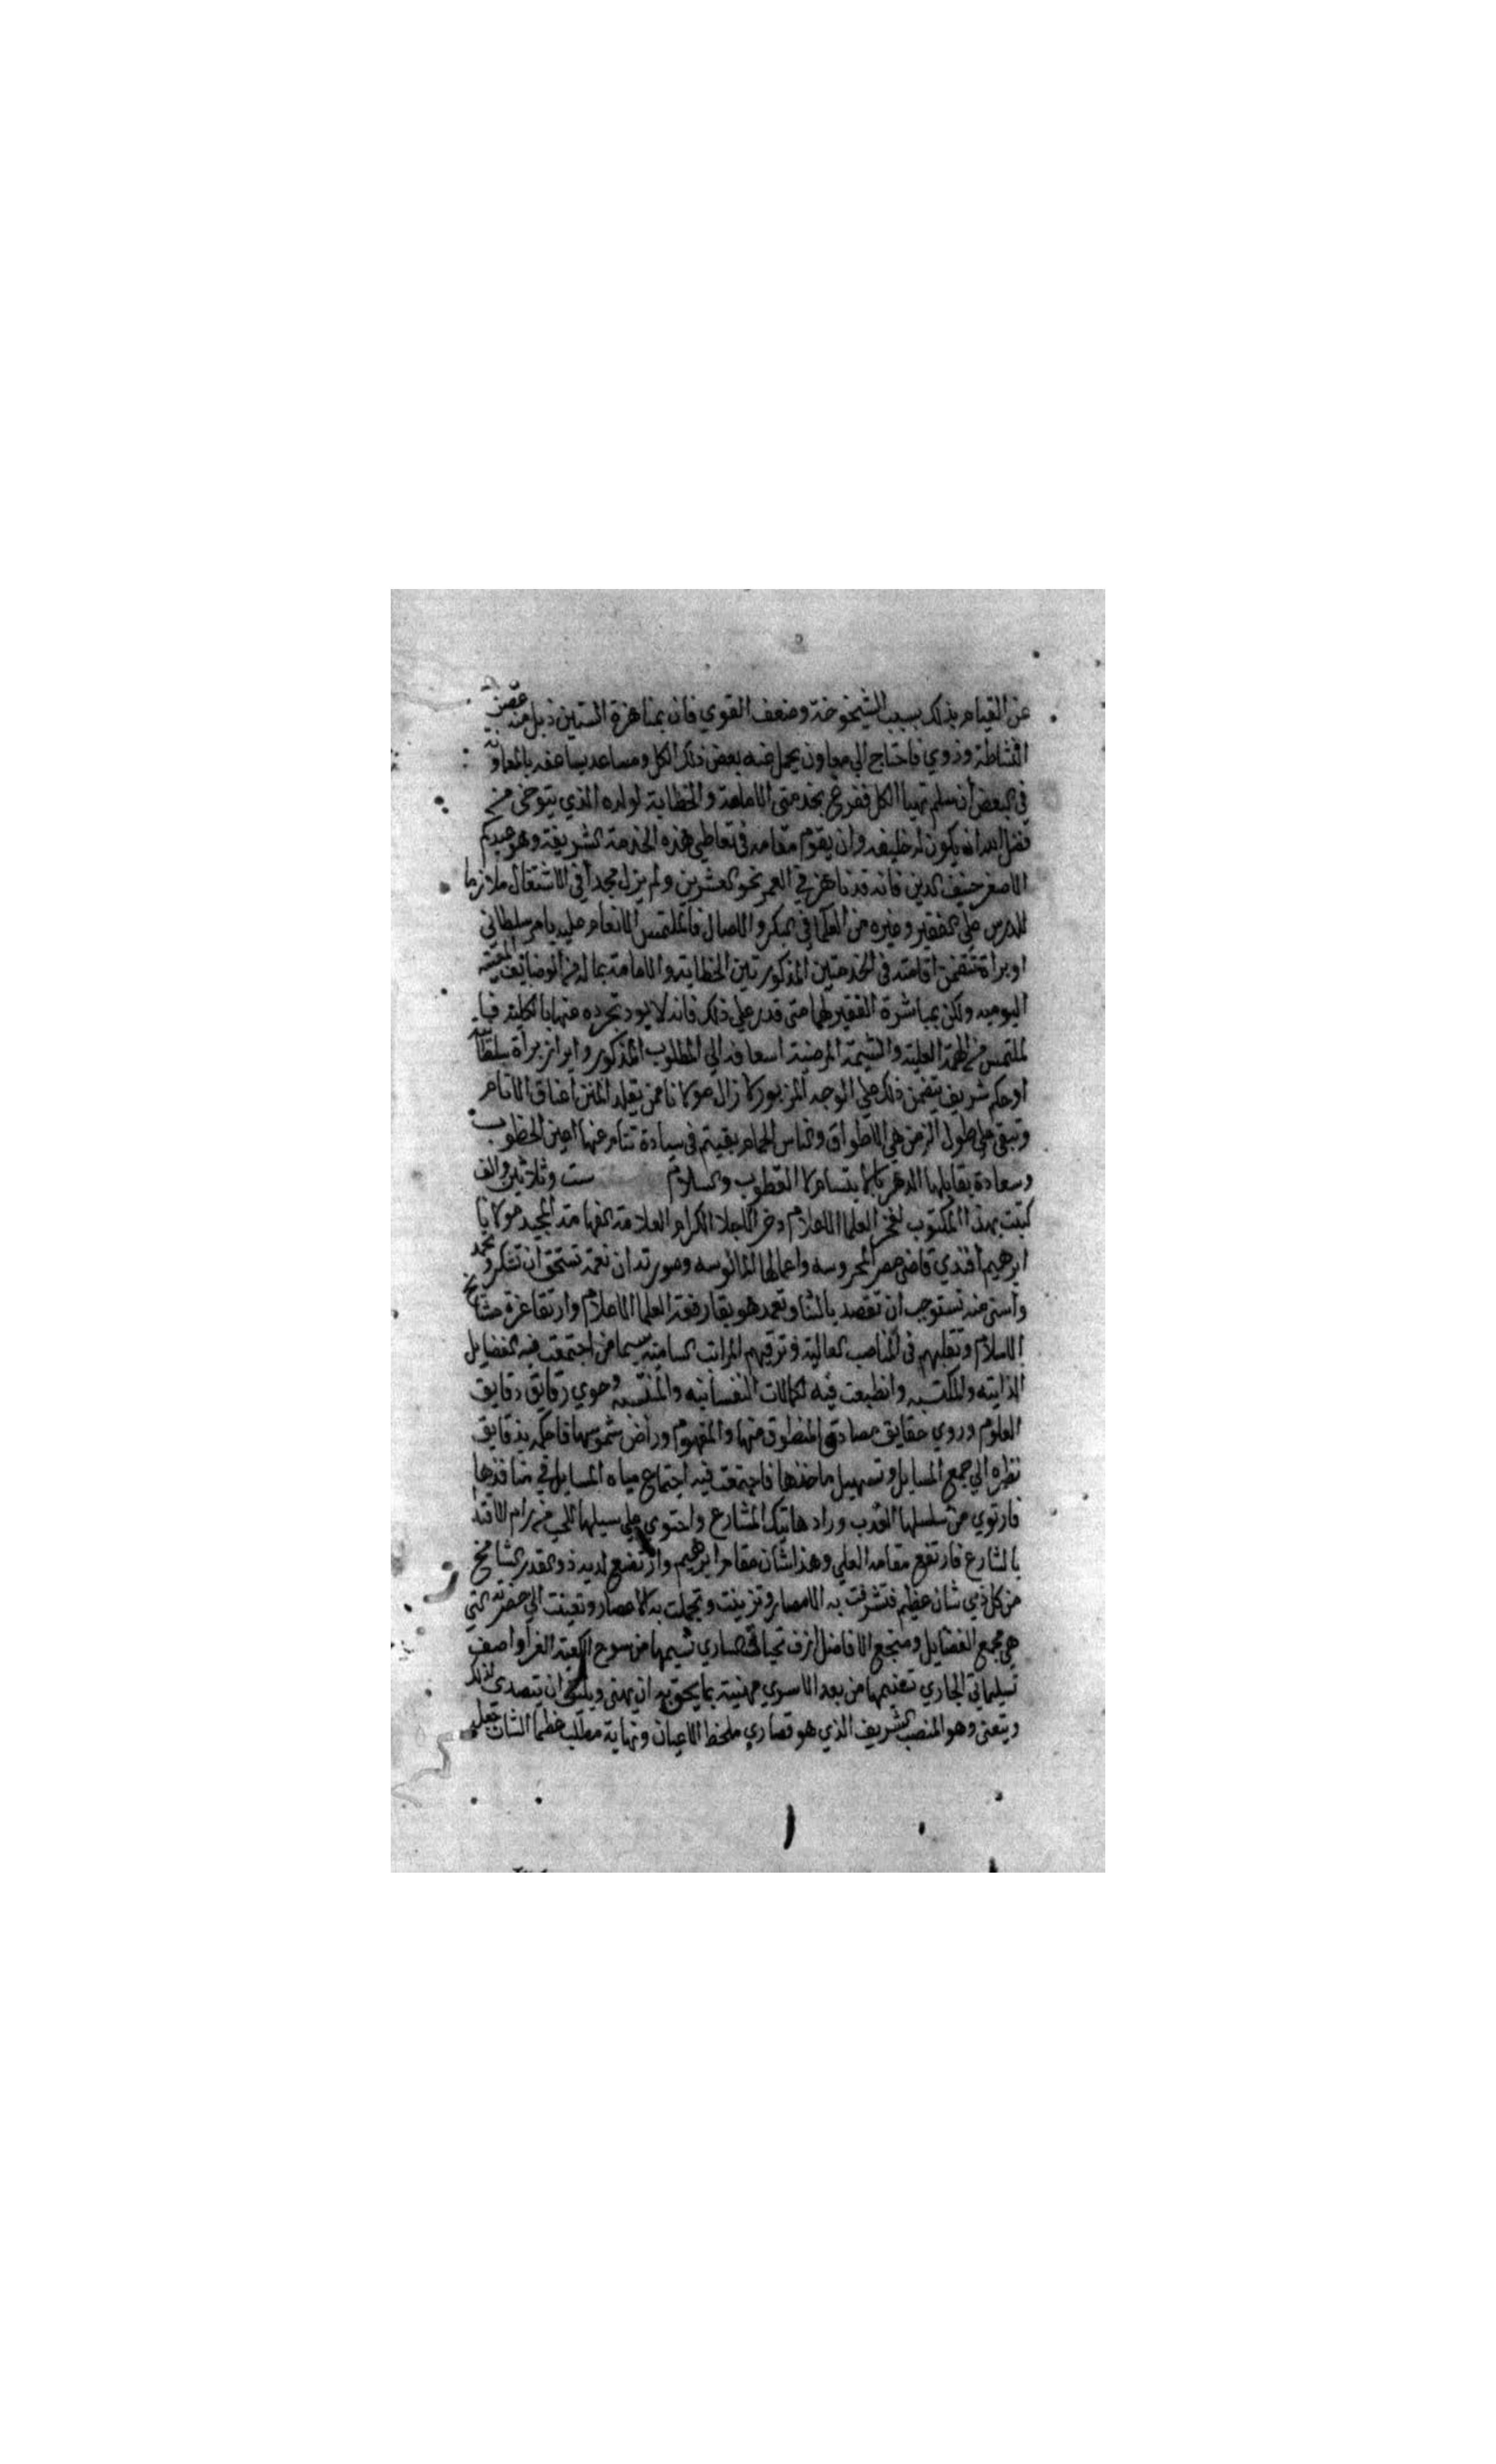 عن القيام بذلك بسبب الشيخوخة وضعف القوي فان بمناهزة الستين ذبل منه غصن
النشاطة وذوي فاحتاج الي معاون يحمل عنه بعض ذلك الكل ومساعد يساعفه بالمعاونة
في البعض أن سلم تهيا الكل ففرغ بخدمتي الامامة والخطابة لولده الذي يتوخى من
فضل الله انه يكون له خليفه وان يقوم مقامه في تعاطي هذه الخدمة الشريفة وهو عبدكم
الاصغر حنيف الدين فانه قد ناهز في العمر نحو العشرين ولم يزل مجدا في الاشتغال ملازما
للدرس علي الفقير وغيره من العلما في البكر والاصال فالملتمس الانعام عليه بامر سلطاني
او براة تتضمن اقامته في الخدمتين المذكورتين الخطابه والامامة بما له من الوضائف المعينه
اليوميه ولكن بمباشرة الفقير لهما متي قدر علي ذلك فانه لا يود تجرده عنها بالكليه فيا
لملتمس من الهمة العلية والشيمة المرضية اسعافه الي المطلوب المذكور وابراز براة سلطا
او حكم شريف يتضمن ذلك علي الوجه المزبور لا زال مولانا ممن يقلد المنن اعناق الانام
وتبقي علي طول الزمن هي الاطواق والناس الحمام بقيتم في سيادة تنام عنها اعين الخطوب
وسعادة يقابلها الدهر بالابتسام لا القطوب والسلام ست وثلاثين والف
كتبت بهذا المكتوب لفخر العلما الاعلام ذخر الاجلا الكرام العلامة الفهامة المجيد مولانا
ابرهيم أفندي قاضي مصر المحروسه واعمالها المانوسه وصورته ان نعمة تستحق ان تشكر وتحمد
وأسني منه تستوجب ان تقصد بالثنا وتعمد هو بقا رفعة العلما الاعلام وارتقا عزة مشايخ
الاسلام وتقلبهم في المناصب العالية وترقيهم المراتب السامية سيما من اجتمعت فيه الفضايل
الذاتيه والمكتسبه وانطبعت فيه الكمالات النفسانيه والنفيسه وحوي رقايق دقايق
العلوم وروي حقايق مصادق المنطوق منها والمفهوم وراض شموسها فاحكم بدقايق
نظره الي جمع المسايل وتسهيل ماخذها فاجتمعت فيه اجتماع مياه المسايل في منافذها
فارتوي من سلسلها العذب وراد هاتيك المشارع واحتوي علي سيلها من رام الاقتدا
بالشارع فارتفع مقامه العلي وهذا شان مقام ابرهيم واتضع لديه ذو القدر الشامخ
من كل ذي شان عظيم فتشرفت به الامصار وتزينت وتجملت به الاعصار وتعينت الي حضرته التي
هي مجمع الفضايل ومنتجع الافاضل ازف تحياتي الساري نسيمها من سوح الكعبة الغرا واصف
تسليماتي الجاري تعنيمها من بعد الاسري مهنية بما يحق به ان يهني وينبغي ان يتصدى لذلك
ويتعنى وهو المنصب الشريف الذي هو قصاري ملحظ الاعيان ونهاية مطلب عظما الشان